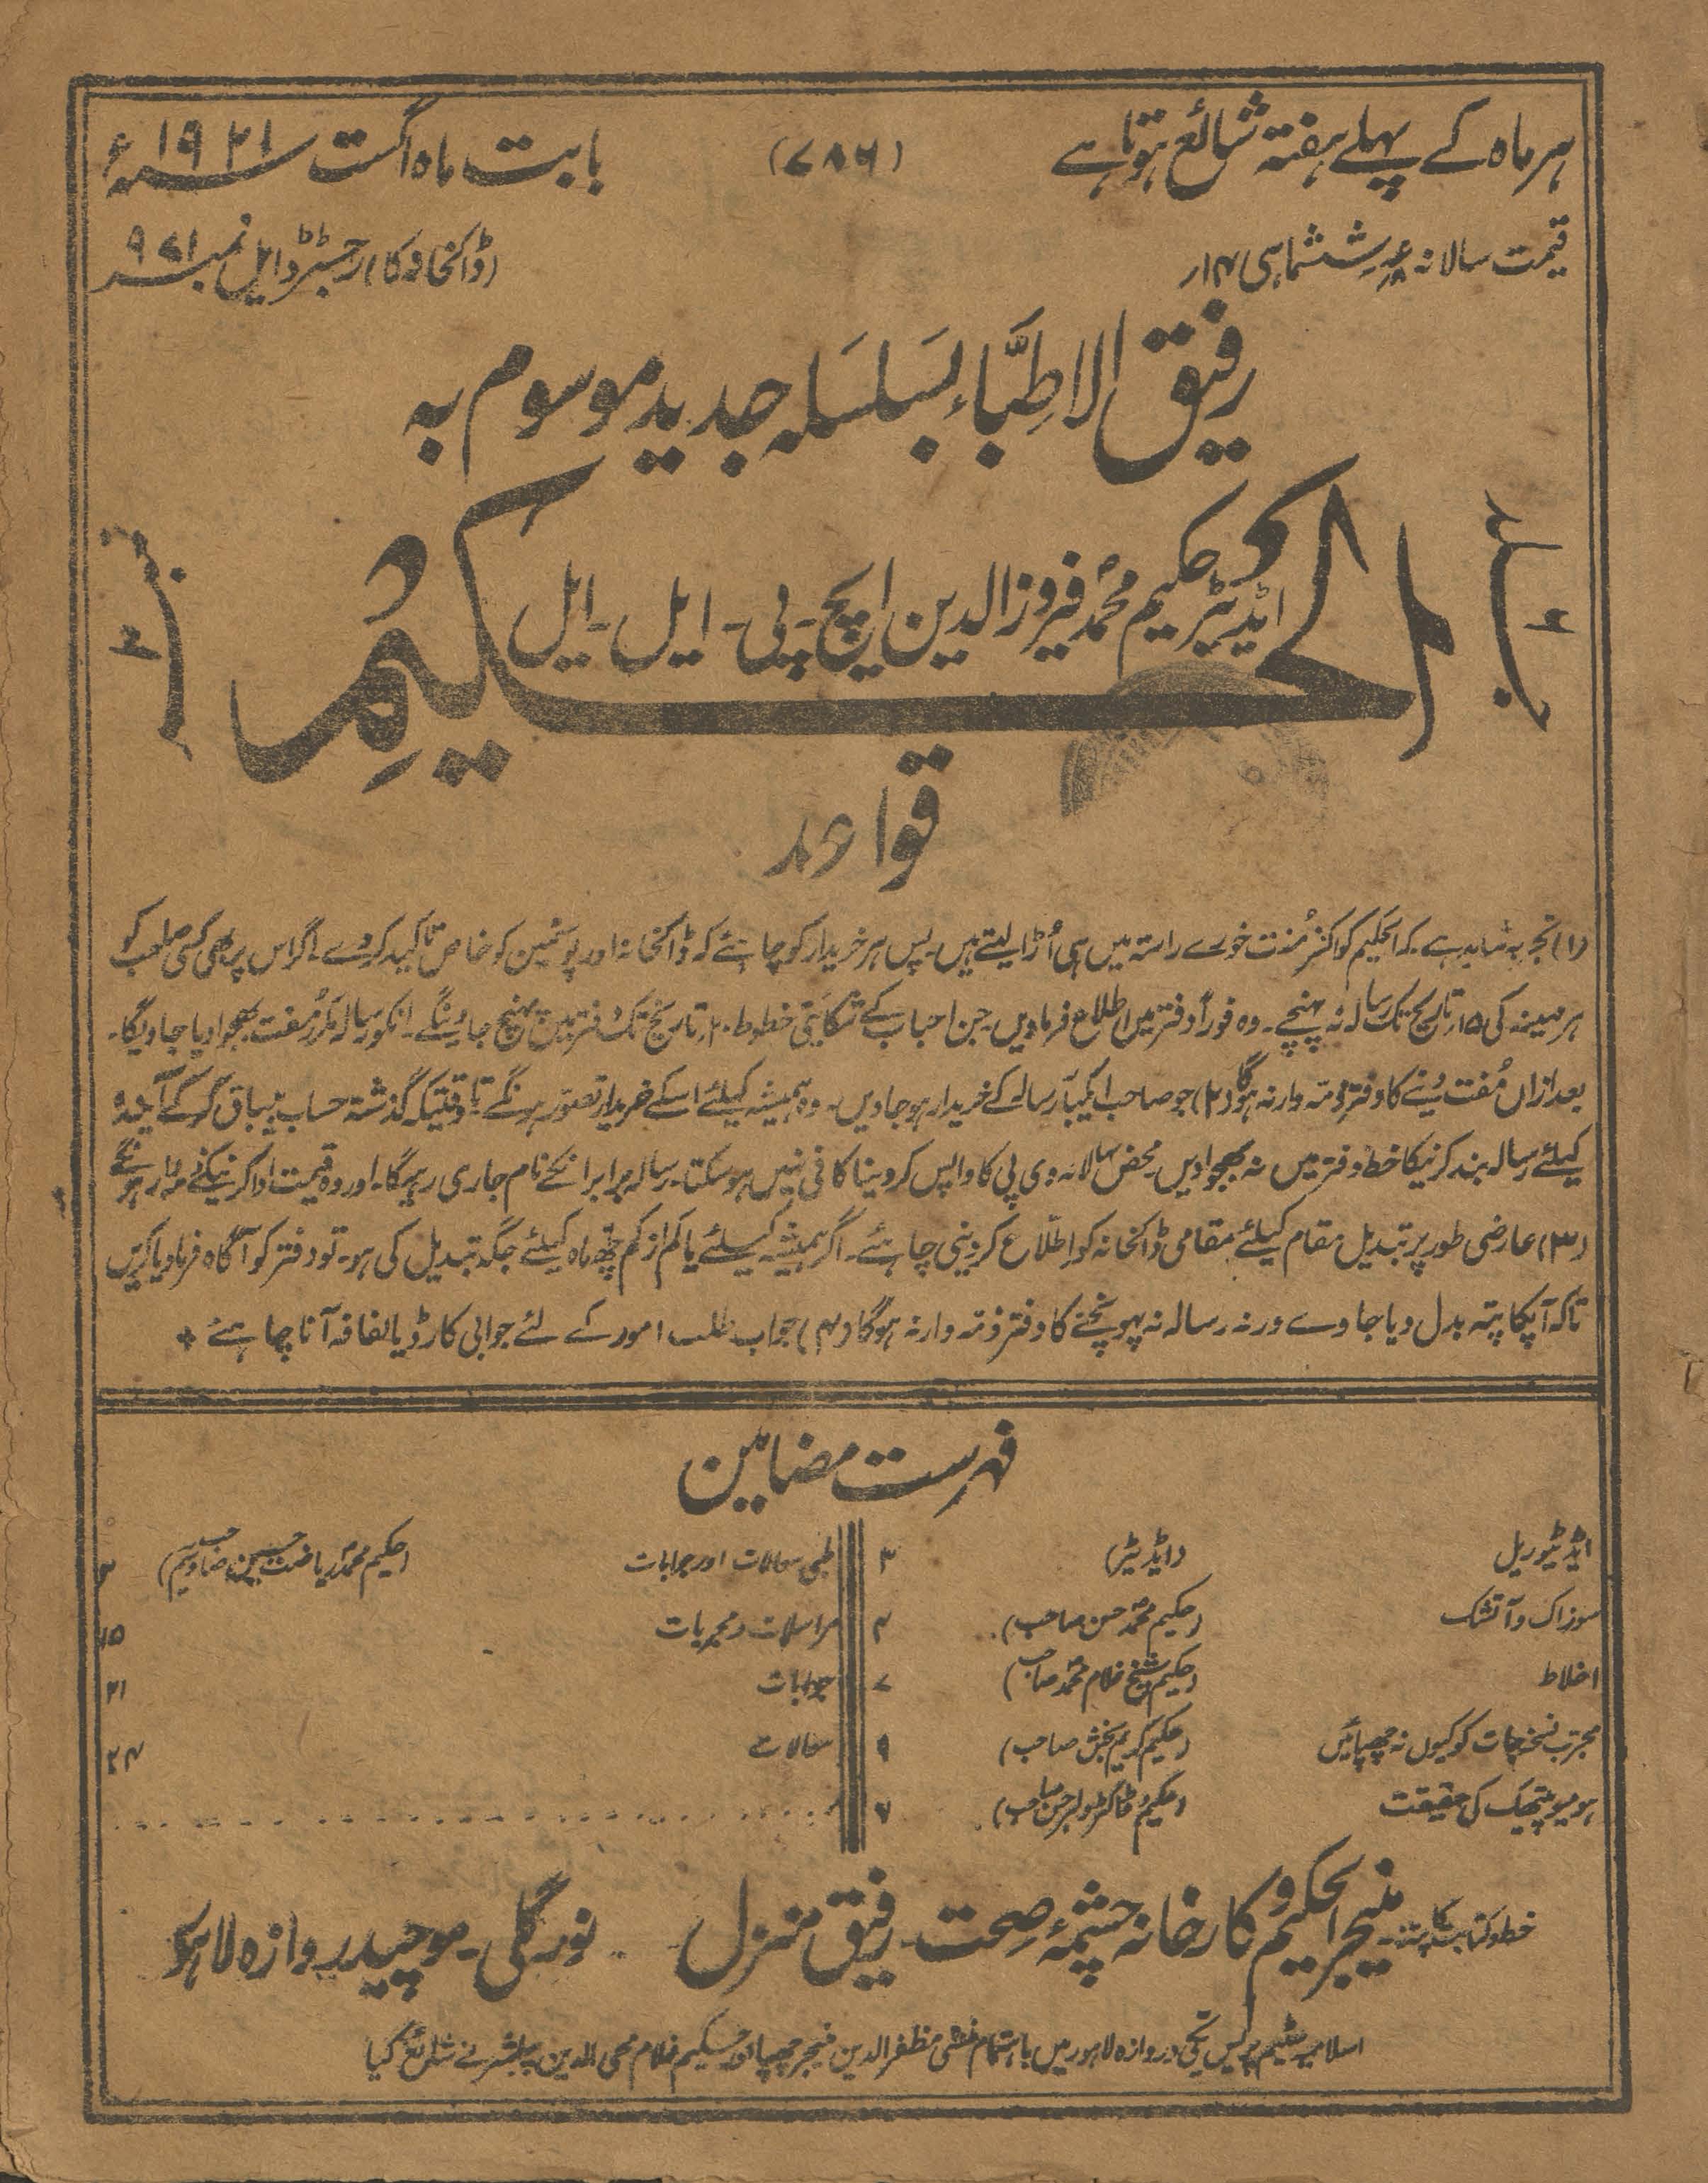 ہر ماہ کے پہلے ہفتہ شائع ہوتا ہے
(۷۸۶)
بابت ماہ اگست ۱۹۲۱ سنہء
قیمت سالانہ ششماہی ۱۴ار
(ڈاکخانہ کا) رجسٹرڈ ایل نمبر ۹۷۱
رفیق الاطبّاء بسلسلہ جدید موسوم بہ
الحکیم
اڈیٹر حکیم محمد فیروزالدین ایچ - پی - ایل - ایل
جلد
نمبر
قواعد
(۱) تجربہ شاہد ہے۔ کہ الحکیم کو اکثر مُفت خورے راستہ میں ہی اُڑا لیتے ہیں۔ پس ہر خریدار کو چاہئے کہ ڈاکخانہ اور پوسٹمین کو خاص تاکید کر دے۔ اگر اس پر بھی کسی صاحب کو
ہر مہینہ کی ۱۵ تاریخ تک رسالہ نہ پہنچے۔ وہ فوراً دفتر میں اطلاع فرماویں۔ جن احباب کے شکایتی خطوط ۲۰ تاریخ تک دفتر میں پہنچ جاوینگے۔ انکو رسالہ مکرر مفت بھجوا دیا جاویگا۔
بعد ازاں مُفت دینے کا دفتر ذمہ وار نہ ہوگا (۲) جو صاحب ایکبار رسالہ کے خریدار ہو جاویں۔ وہ ہمیشہ کیلئے اسکے خریدار تصور ہونگے۔ تاوقتیکہ گذشتہ حساب بیباق کر کے آیندہ
کیلئے رسالہ بند کرنیکا خط دفتر میں نہ بھجوادیں۔ محض سالانہ وی پی کا واپس کر دینا کافی نہیں ہو سکتا۔ رسالہ برابر انکے نام جاری رہیگا۔ اور وہ قیمت ادا کرنیکے ذمہ وار ہونگے
(۳) عارضی طور پر تبدیل مقام کیلئے مقامی ڈاکخانہ کو اطلاع کر دینی چاہئے۔ اگر ہمیشہ کیلئے یا کم از کم چھ ماہ کیلئے جگہ تبدیل کی ہو۔ تو دفتر کو آگاہ فرما دیا کریں
تاکہ آپکا پتہ بدل دیا جاوے ورنہ رسالہ نہ پہونچنے کا دفتر ذمہ وار نہ ہوگا (۴) جواب طلب امور کے لئے جوابی کارڈ یا لفافہ آنا چاہئے +
فہرست مضامین
ایڈیٹوریل (ایڈیٹر) ۳
سوزاک و آتشک (حکیم محمد حسن صاحب) ۴
اخلاط (حکیم شیخ غلام محمد صاحب) ۷
مجرّب نسخہ جات کو کیوں نہ چھپائیں (حکیم کریم بخش صاحب) ۹
ہومیوپیتھک کی حقیقت (حکیم و ڈاکٹر صاحب) ۷
طبی سوالات اور جوابات (حکیم محمد ریاضت حسین صاحب وسیم)
مراسلات و مجربات ۱۵
جوابات ۲۱
سوالات ۲۴
خط و کتابت کا پتہ۔ منیجر الحکیم و کارخانہ چشمۂ صحت۔ رفیق منزل نور گلی۔ موچیدروازہ لاہور
اسلامیہ سٹیم پریس یکی دروازہ لاہور میں باہتمام منشی مظفرالدین منیجر چھپا اور حکیم غلام محی الدین پبلشر نے شائع کیا